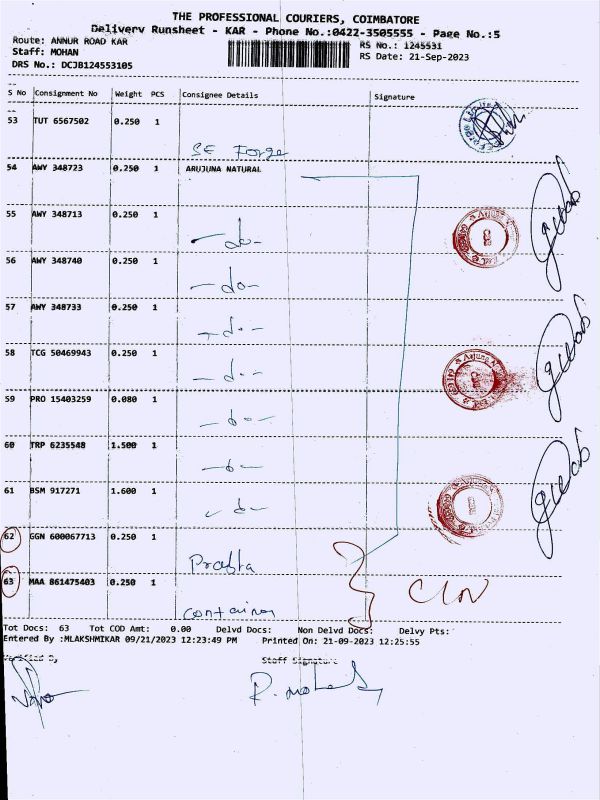 THE PROFESSIONAL COURIERS, COIMBATORE
Delivery Runsheet - KAR - Phone No.:0422-3505555 - Page No.:5
Route: ANNUR ROAD KAR
RS No.: 1245531
Staff: MOHAN
RS Date: 21-Sep-2023
DRS No.: DCJB124553105
S No Consignment No Weight PCS Consignee Details Signature
53 TUT 6567502 0.250 1
SE Forge
54 AWY 348723 0.250 1 ARUJUNA NATURAL
55 AWY 348713 0.250 1
-do-
56 AWY 348740 0.250 1
-do-
57 AWY 348733 0.250 1
-do-
58 TCG 50469943 0.250 1
-do-
59 PRO 15403259 0.080 1
-do-
60 TRP 6235548 1.500 1
-do-
61 BSM 917271 1.600 1
-do-
62 GGN 600067713 0.250 1
Prabta
63 MAA 861475403 0.250 1
Container
Tot Docs: 63 Tot COD Amt: 0.00 Delvd Docs: Non Delvd Docs: Delvy Pts:
Entered By :MLAKSHMIKAR 09/21/2023 12:23:49 PM Printed On: 21-09-2023 12:25:55
Verified By Staff Signature